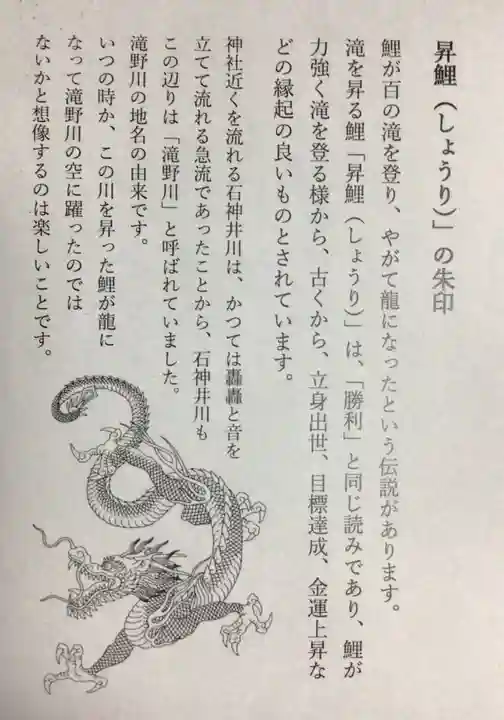 昇鯉（しょうり）」の朱印
鯉が百の滝を登り、やがて龍になったという伝説があります。
滝を昇る鯉「昇鯉（しょうり）」は、「勝利」と同じ読みであり、鯉が
力強く滝を登る様から、古くから、立身出世、目標達成、金運上昇な
どの縁起の良いものとされています。
神社近くを流れる石神井川は、かつては轟轟と音を
立てて流れる急流であったことから、石神井川も
この辺りは「滝野川」と呼ばれていました。
滝野川の地名の由来です。
いつの時か、この川を昇った鯉が龍に
なって滝野川の空に躍ったのでは
ないかと想像するのは楽しいことです。